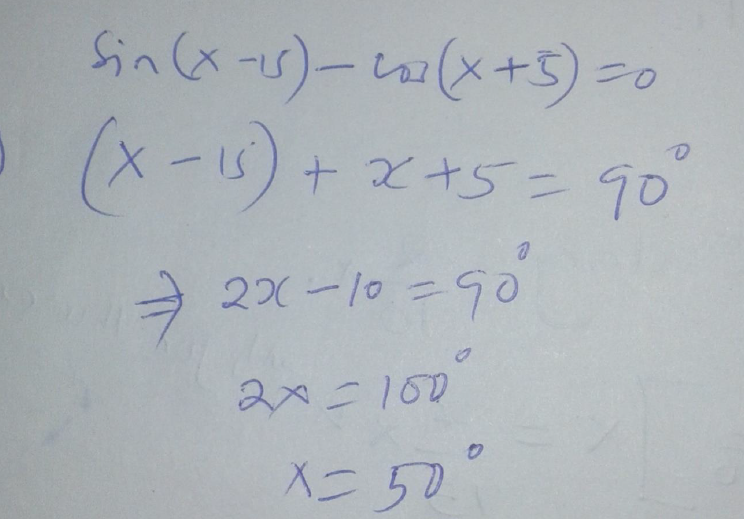 Sin(x-15)-cos(x+5)=0
(x-15)+x+5=90°
⇒ 2x-10=90°
2x=100°
x=50°